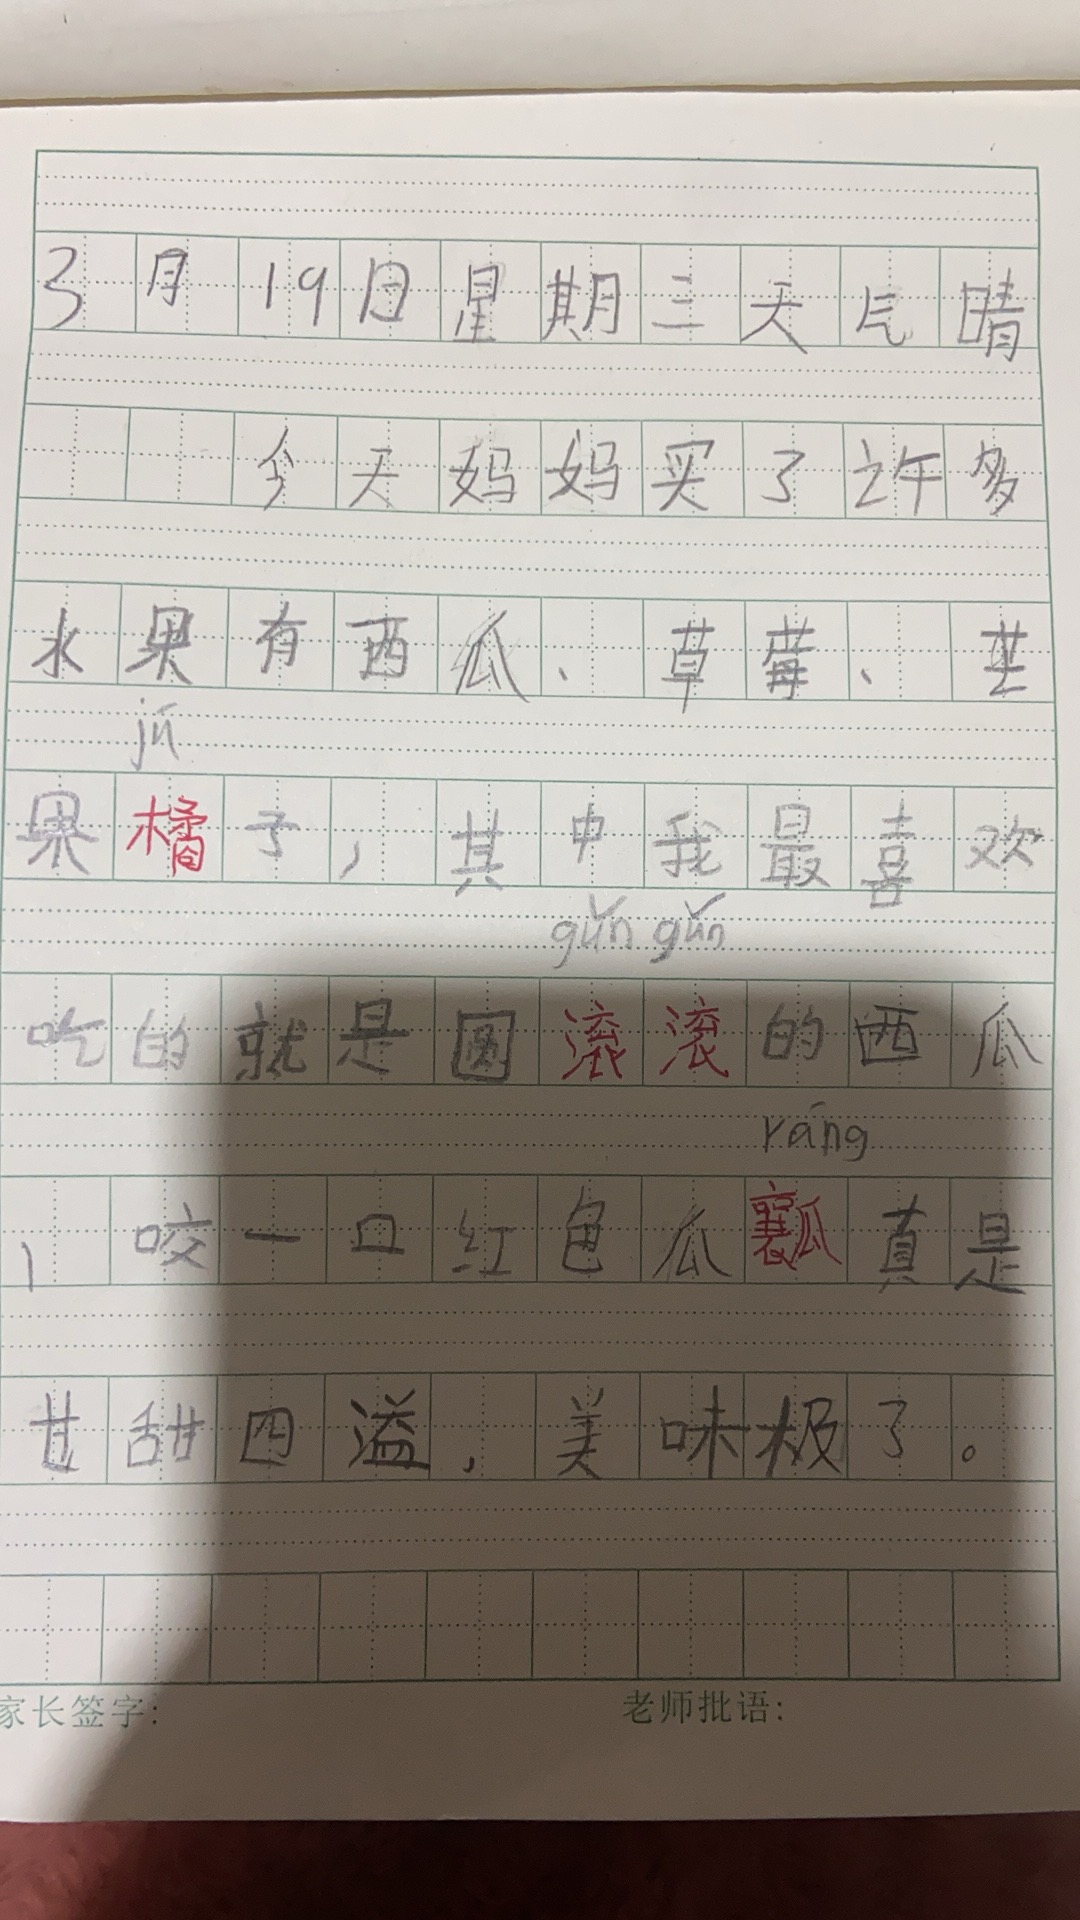 3月19日星期三天气晴
今天妈妈买了许多
水果有西瓜、草莓、芒
jú
果橘子,其中我最喜欢
gǔn gǔn
吃的就是圆滚滚的西瓜
ráng
,咬一口红色瓜瓤真是
甘甜四溢,美味极了。
家长签字:
老师批语: